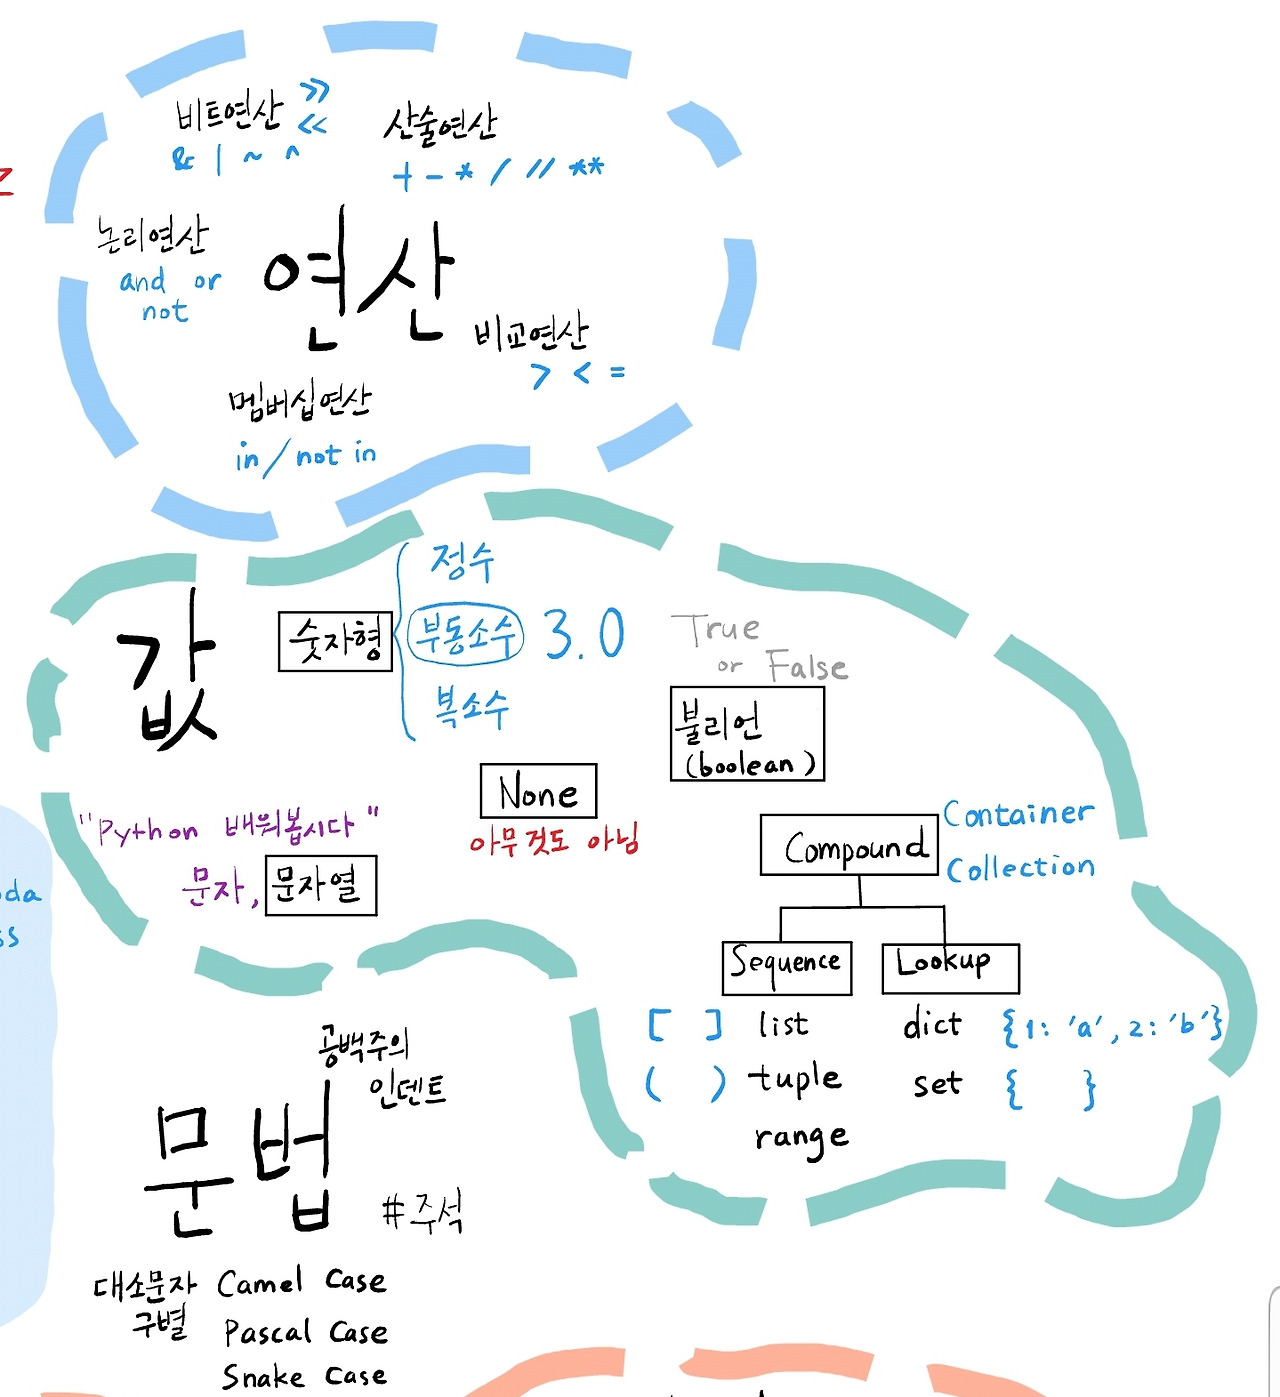 비트연산 >> <<
& | ~ ^
산술연산
+ - * / // **
논리연산
and or
not
연산
비교연산
> < =
멤버십연산
in / not in
값
숫자형
정수
부동소수 3.0
복소수
True
or False
불리언
(boolean)
None
아무것도 아님
"Python 배워봅시다"
문자, 문자열
Compound
Container
Collection
Sequence
Lookup
[ ] list
( ) tuple
range
dict {1: 'a', 2: 'b'}
set { }
공백주의
인덴트
문법
#주석
대소문자
구별
Camel Case
Pascal Case
Snake Case